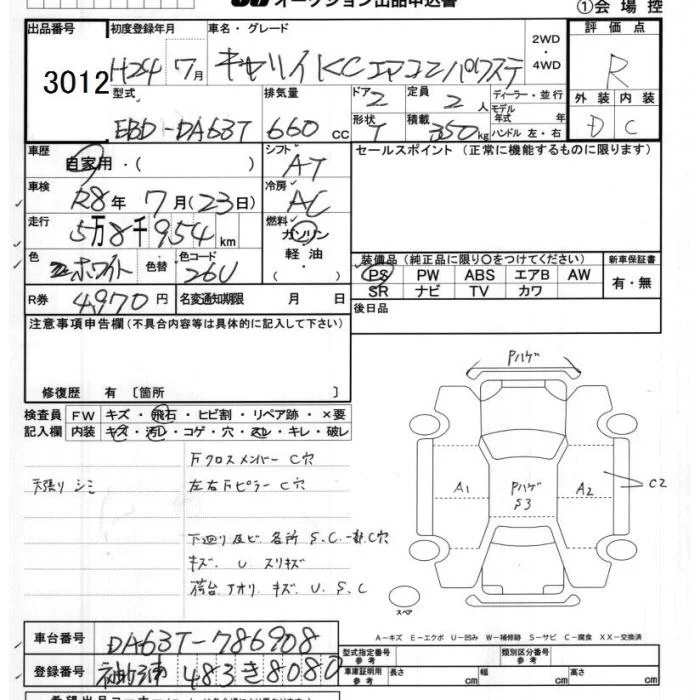 オークション出品申込書
①会場控
出品番号 初度登録年月 車名・グレード 2WD・4WD 評価点
3012 H24 7月 キャリイKCエアコンパワステ R
型式 排気量 ドア 2 定員 2人 ディーラー・並行 外装 内装
EBD-DA63T 660cc 形状 T 積載 350kg モデル年式 年式 ハンドル 左・右 D C
車歴 自家用・( ) シフト AT セールスポイント (正常に機能するものに限ります)
車検 R8年 7月(23日) 冷房 AC
走行 5万8千954km 燃料 ガソリン
軽油
( )
色 ホワイト 色替 色コード 26U
装備品 (純正品に限り○をつけてください) 新車保証書
PS PW ABS エアB AW 有・無
SR ナビ TV カワ
R券 4,970円 名変通知期限 月 日 後日品
注意事項申告欄 (不具合内容等は具体的に記入して下さい)
修復歴 有 〔箇所 〕
検査員 FW キズ・飛石・ヒビ割・リペア跡・×要
記入欄 内装 キズ・汚レ・コゲ・穴・スレ・キレ・破レ
Fクロスメンバー C穴
天張リ シミ 左右Fピラー C穴
下廻り及ビ 各所 S.C.一部C穴
キズ U スリキズ
荷台アオリ キズ U S.C
Pハゲ
A1 Pハゲ S3 A2 C2
スペア
A-キズ E-エクボ U-凹み W-補修跡 S-サビ C-腐食 XX-交換済
車台番号 DA63T-786908 型式指定番号 参考 類別区分番号 参考
登録番号 袖ケ浦 483 き 8080 車庫証明用 参考 長さ cm 幅 cm 高さ cm